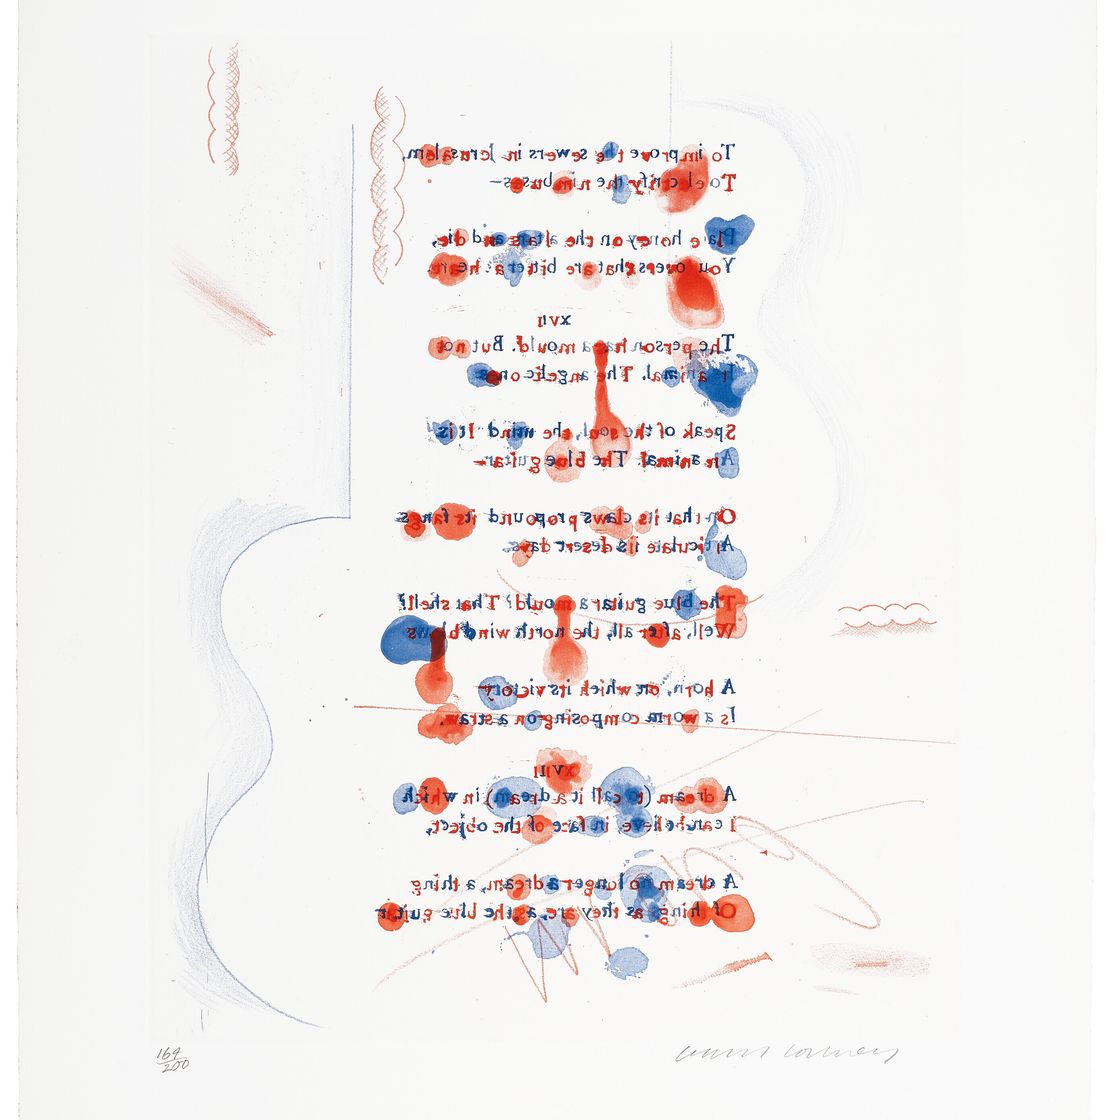 To improve the sewers in Jerusalem,
To electrify the nimbuses—
Place honey on the altars and die,
You lovers that are bitter at heart.
XVII
The person has a mould. But not
Its animal. The angelic ones
Speak of the soul, the mind. It is
An animal. The blue guitar—
On that its claws propound, its fangs
Articulate its desert days.
The blue guitar a mould? That shell?
Well, after all, the north wind blows
A horn, on which its victory
Is a worm composing on a straw.
XVIII
A dream (to call it a dream) in which
I can believe, in face of the object,
A dream no longer a dream, a thing,
Of things as they are, as the blue guitar
164/200